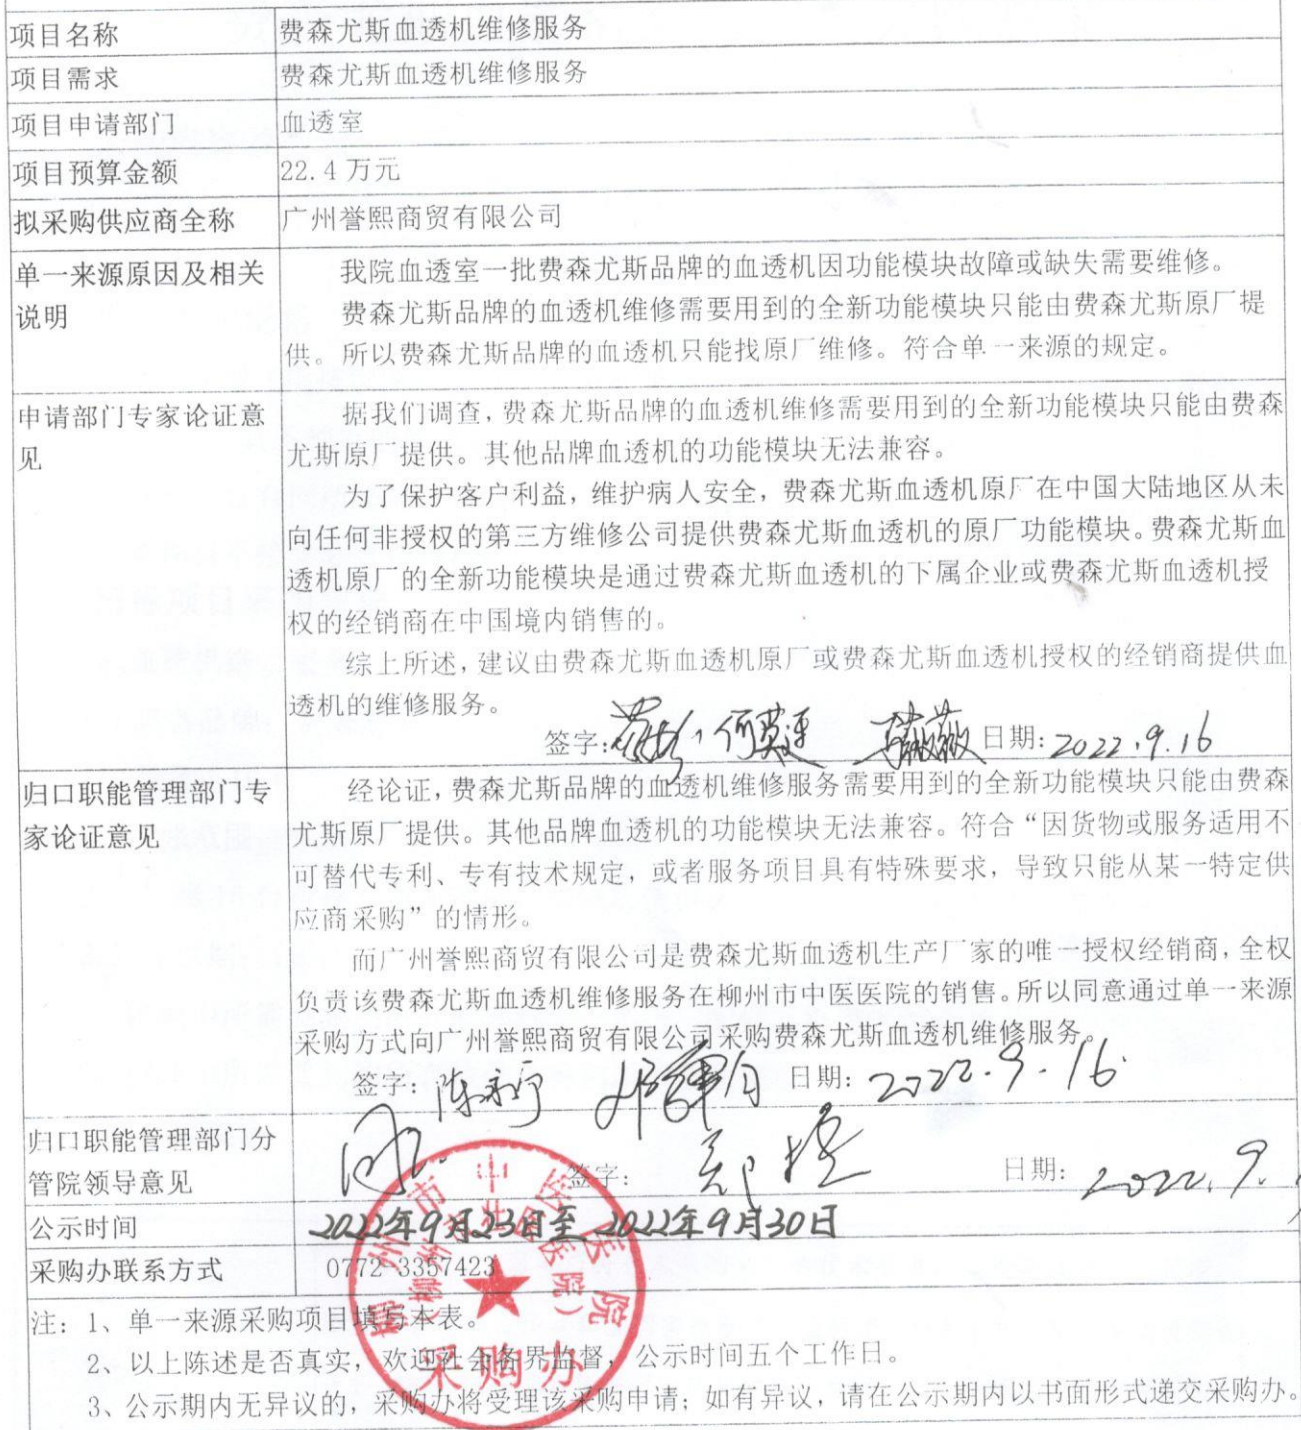 项目名称
费森尤斯血透机维修服务
项目需求
费森尤斯血透机维修服务
项目申请部门
血透室
项目预算金额
22.4万元
拟采购供应商全称
广州誉熙商贸有限公司
单一来源原因及相关
说明
我院血透室一批费森尤斯品牌的血透机因功能模块故障或缺失需要维修。
费森尤斯品牌的血透机维修需要用到的全新功能模块只能由费森尤斯原厂提
供。所以费森尤斯品牌的血透机只能找原厂维修。符合单一来源的规定。
申请部门专家论证意
见
据我们调查,费森尤斯品牌的血透机维修需要用到的全新功能模块只能由费森
尤斯原厂提供。其他品牌血透机的功能模块无法兼容。
为了保护客户利益,维护病人安全,费森尤斯血透机原厂在中国大陆地区从未
向任何非授权的第三方维修公司提供费森尤斯血透机的原厂功能模块。费森尤斯血
透机原厂的全新功能模块是通过费森尤斯血透机的下属企业或费森尤斯血透机授
权的经销商在中国境内销售的。
综上所述,建议由费森尤斯血透机原厂或费森尤斯血透机授权的经销商提供血
透机的维修服务。
签字: 日期: 2022.9.16
归口职能管理部门专
家论证意见
经论证,费森尤斯品牌的血透机维修服务需要用到的全新功能模块只能由费森
尤斯原厂提供。其他品牌血透机的功能模块无法兼容。符合“因货物或服务适用不
可替代专利、专有技术规定，或者服务项目具有特殊要求，导致只能从某一特定供
应商采购”的情形。
而广州誉熙商贸有限公司是费森尤斯血透机生产厂家的唯一授权经销商,全权
负责该费森尤斯血透机维修服务在柳州市中医医院的销售。所以同意通过单一来源
采购方式向广州誉熙商贸有限公司采购费森尤斯血透机维修服务。
签字: 日期: 2022.9.16
归口职能管理部门分
管院领导意见
签字: 日期: 2022.9.
公示时间
2022年9月23日至2022年9月30日
采购办联系方式
0772-3357423
柳州市中医医院
采购办
注：1、单一来源采购项目填写本表。
2、以上陈述是否真实，欢迎社会各界监督，公示时间五个工作日。
3、公示期内无异议的，采购办将受理该采购申请；如有异议，请在公示期内以书面形式递交采购办。